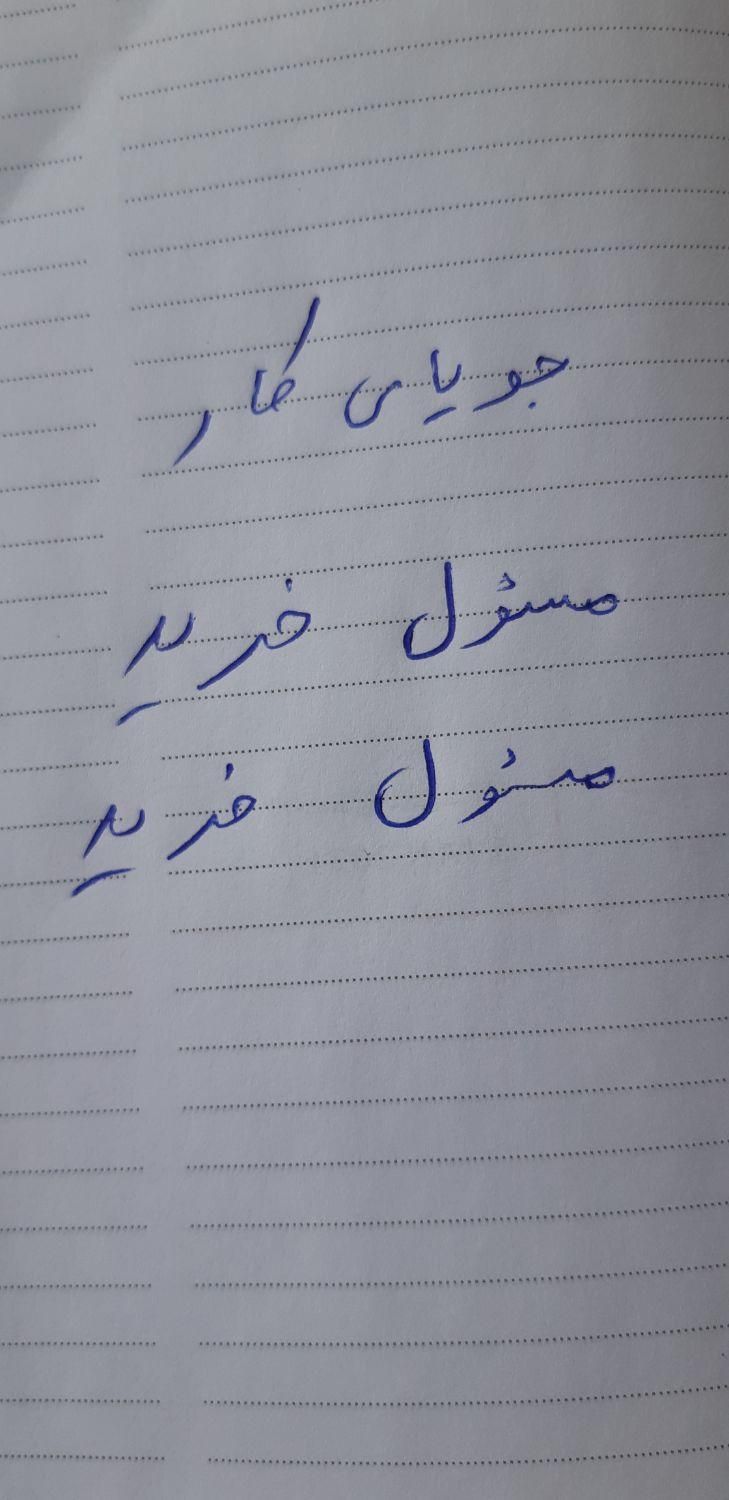 جویای کار
مسئول خرید
مسئول خرید